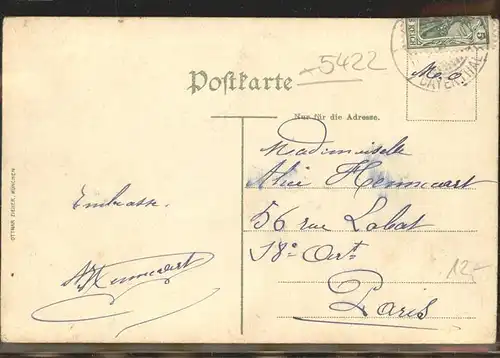 5422
5
Postkarte
BAYENTHAL
Nur für die Adresse.
Mademoiselle
Alice Hennecart
56 rue Labat
18e Arrt
Paris
12.-
Embrasse.
A Hennecart
OTTMAR ZIEHER, MÜNCHEN